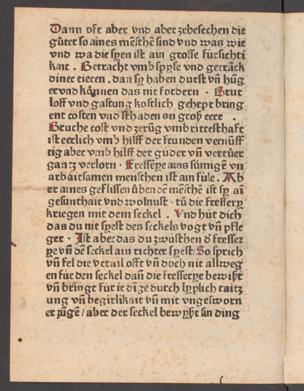 Dann oft aber vnd aber zebesechen die
güter so aines mēsche sind vnd was wie
vnd wa die syen ist ain grosse fürsichti
kait . Betracht vmb spyse vnd getränck
diner tieren . dan sy haben durst vn̄ hūg
er vnd können das nit fordern . Brut
loff vnd gastung kostlich gehept bring
ent costen vnd schaden on gross eere .
Bruche cost vnd zerüg vmb ritterschaft
ist eerlich vmb hilff der frunden vernünff
tig aber vmb hilff der guder vn̄ vertüer
gantz verlorn . Fresserye ains sinnigē vn
arbaitsamen menschen ist ain füle . Ab
er aines geflissen ūben dē mēsche ist sy ai
gesunthait vnd wolnust . tū die fressery
kriegen mit dem seckel . Vnd hüt dich
das du nit syest des seckels vogt vn̄ pfle
ger . Ist aber das du zwüschen d fresser
ye vn̄ dē seckel ain richter syest So sprich
vn̄ fel die vrtail offt vn̄ doch nit allweg
en für den seckel dan̄ die fresserye bewißt
vn̄ bringt für it dīge durch lyplich raitz
ung vn̄ begirlikait vn̄ mit vngesworn
er zügē / aber der seckel bewyßt sin ding